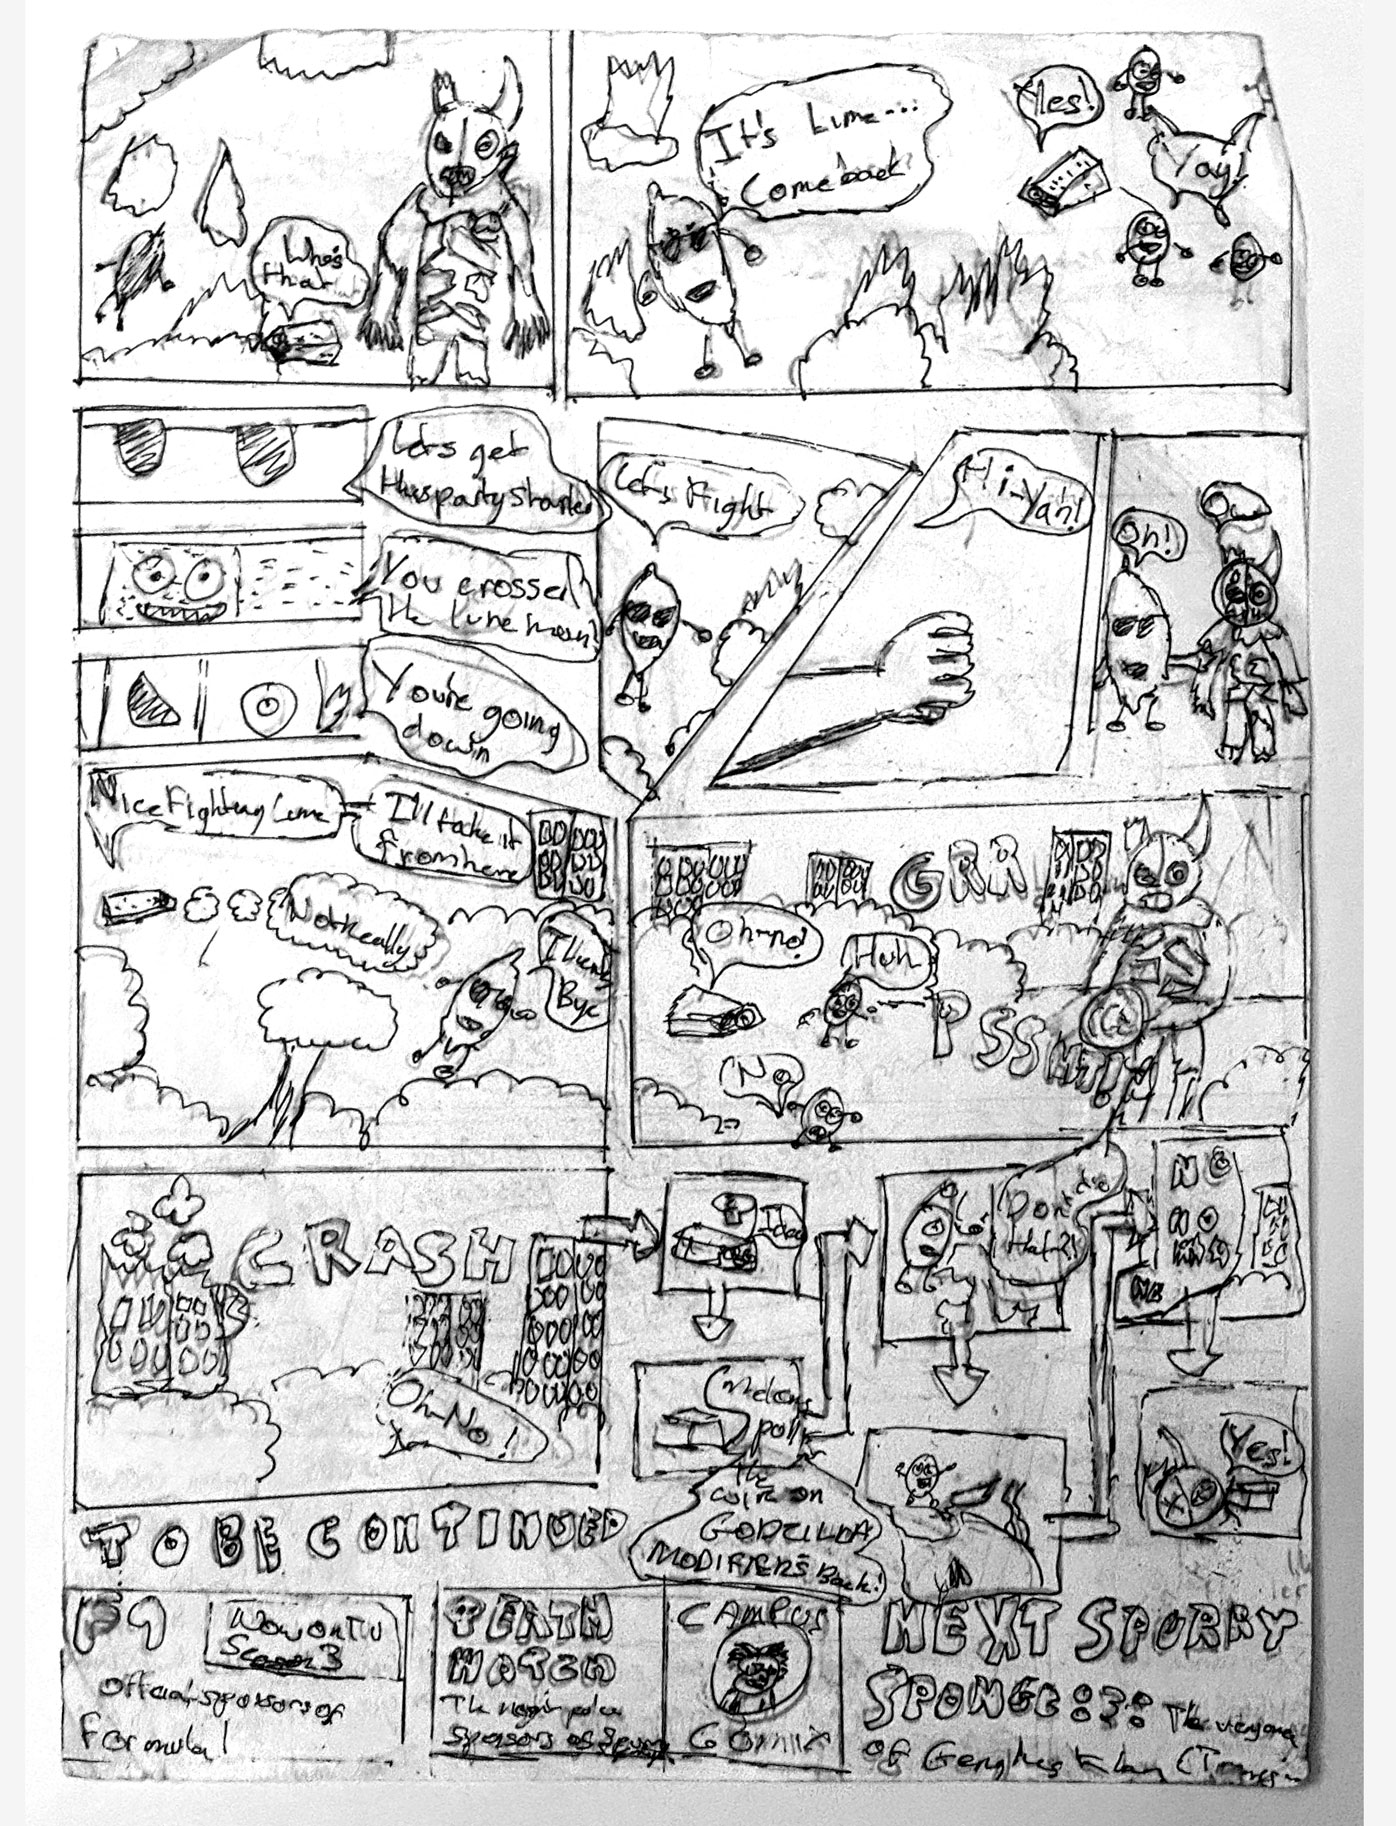 Who's
that
It's Lime....
Comeback!
Yes!
Yay!
Let's get
this party started
You crossed
the lime man!
You're going
down
Let's Fight
Hi-Yah!
Oh!
Ow
Nice Fighting Lime
I'll take it
from here
Not Really
Thanks
Bye
GRR
Oh-no!
Huh
PSSH
No
CRASH
Oh-No!
Idea
pull
the
coin on
GODZILLA
MODIFIER'S Back!
Don't do
that!
NO
NO
NO
Yes!
TO BE CONTINUED
F1
Now on TV
Season 3
Official sponsors of
Formula 1
DEATH
WATCH
The
sponsors of Spurry
CAMPUS
COMIX
NEXT SPURRY
SPONGE:3: The
of Genghis Khan